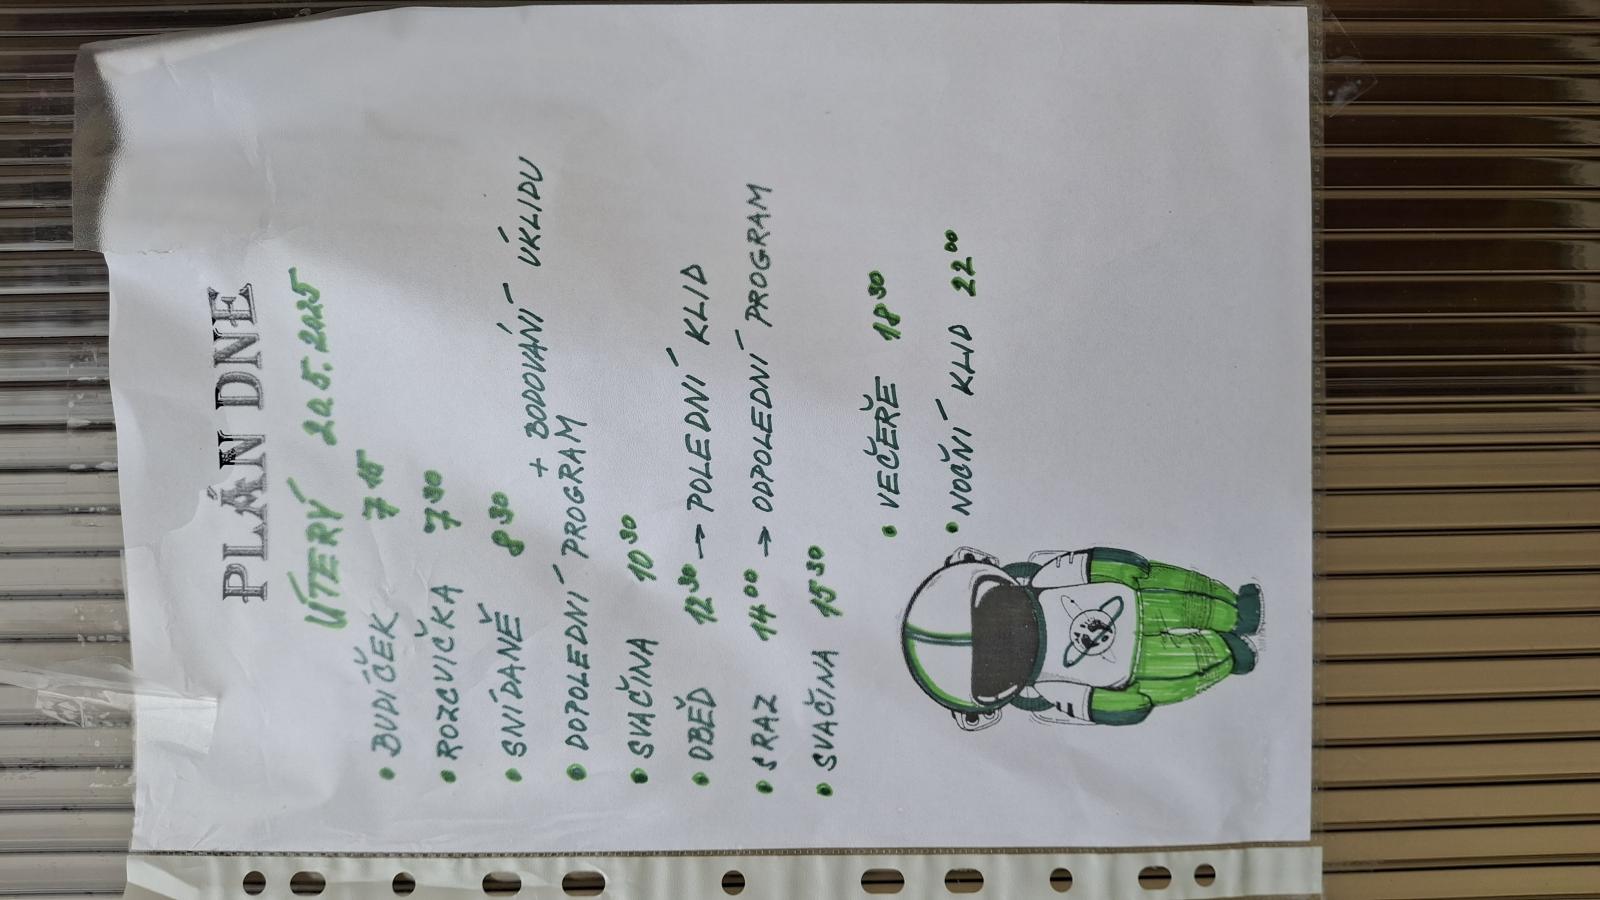 PLÁN DNE
ÚTERÝ 20.5.2025
• BUDÍČEK 7 15
• ROZCVIČKA 7 30
• SNÍDANĚ 8 30
+ BODOVÁNÍ ÚKLIDU
• DOPOLEDNÍ PROGRAM
• SVAČINA 10 30
• OBĚD 12 30 → POLEDNÍ KLID
• SRAZ 14 00 → ODPOLEDNÍ PROGRAM
• SVAČINA 15 30
• VEČEŘE 18 30
• NOČNÍ KLID 22 00